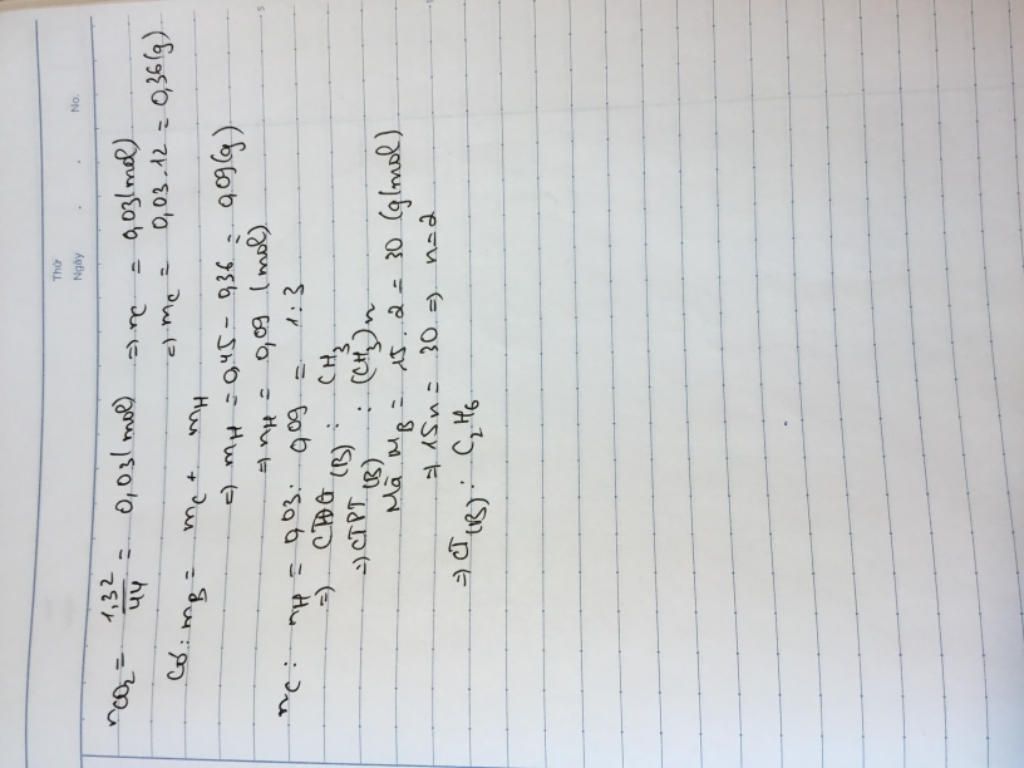 Thứ
Ngày . . No.
nCO₂ = 1,32/44 = 0,03(mol) => nC = 0,03(mol)
=> mC = 0,03.12 = 0,36(g)
Có: mB = mC + mH
=> mH = 0,45 - 0,36 = 0,09(g)
=> nH = 0,09 (mol)
nC : nH = 0,03 : 0,09 = 1:3
=> CTĐG (B) : CH₃
=> CTPT (B) : (CH₃)n
Mà MB = 15 . 2 = 30 (g/mol)
=> 15n = 30 => n=2
=> CT (B) : C₂H₆